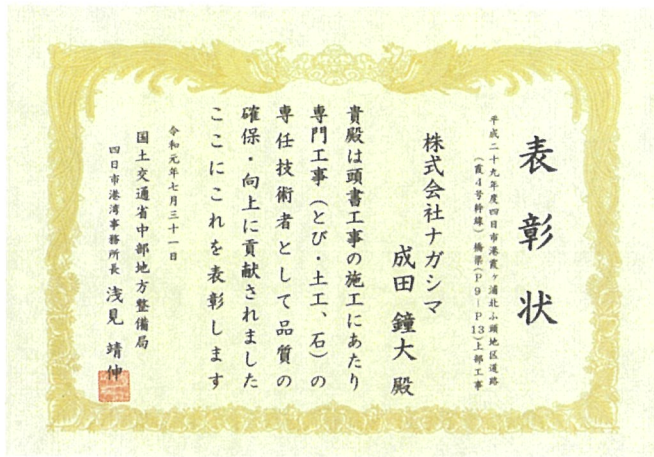 表彰状
平成二十九年度四日市港霞ヶ浦北ふ頭地区道路
(霞4号幹線)橋梁(P9-P13)上部工事
株式会社ナガシマ
成田 鐘大 殿
貴殿は頭書工事の施工にあたり
専門工事(とび・土工、石)の
専任技術者として品質の
確保・向上に貢献されました
ここにこれを表彰します
令和元年七月三十一日
国土交通省中部地方整備局
四日市港湾事務所長 浅見 靖伸